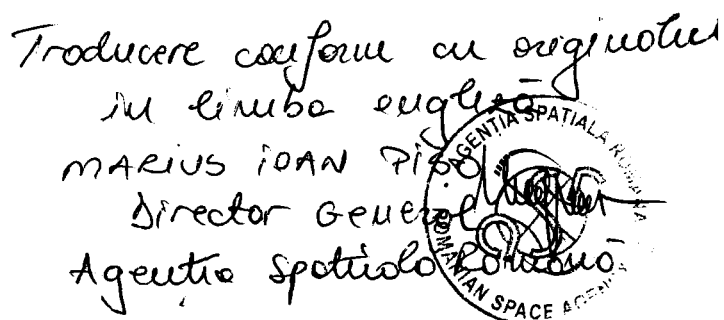 Traducere conform cu originalul
în limba engleză
MARIUS IOAN PISO
Director General
Agenția Spațială Română
AGENTIA SPATIALA ROMANA
ROMANIAN SPACE AGENCY